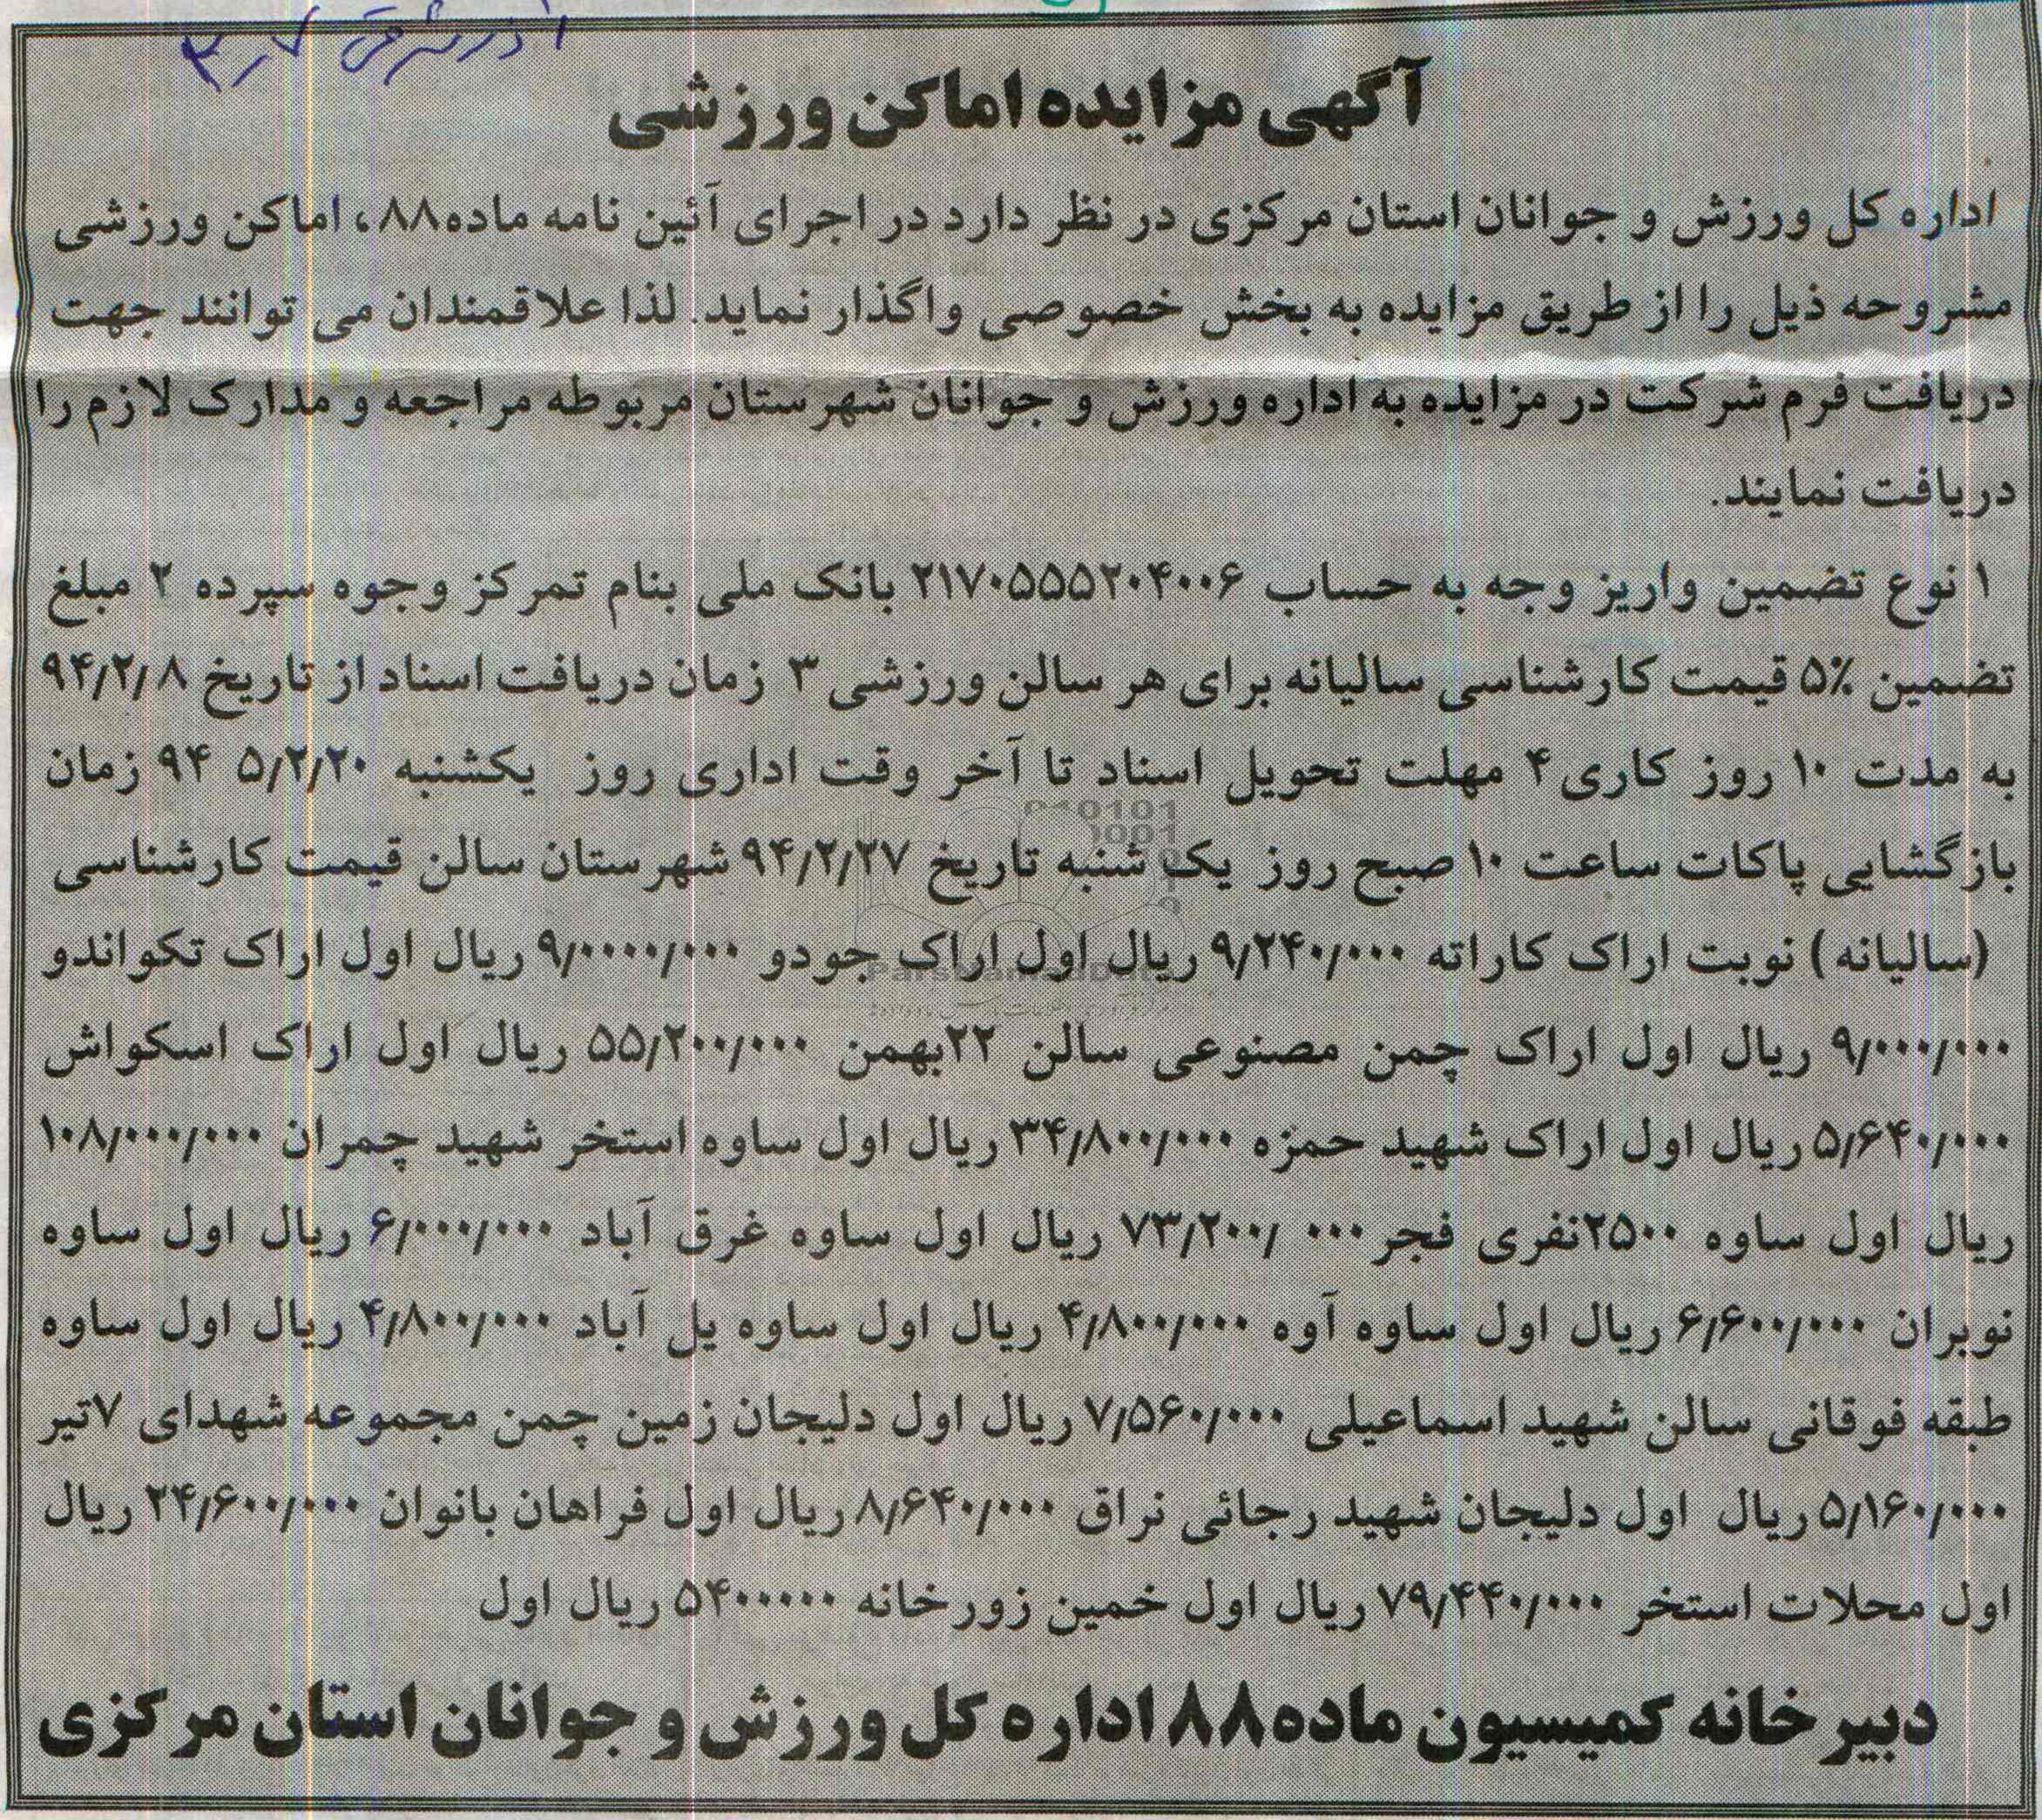 آگهی مزایده اماکن ورزشی
اداره کل ورزش و جوانان استان مرکزی در نظر دارد در اجرای آئین نامه ماده۸۸، اماکن ورزشی
مشروحه ذیل را از طریق مزایده به بخش خصوصی واگذار نماید. لذا علاقمندان می توانند جهت
دریافت فرم شرکت در مزایده به اداره ورزش و جوانان شهرستان مربوطه مراجعه و مدارک لازم را
دریافت نمایند.
۱ نوع تضمین واریز وجه به حساب ۲۱۷۰۵۵۵۲۰۴۰۰۶ بانک ملی بنام تمرکز وجوه سپرده ۲ مبلغ
تضمین ۵٪ قیمت کارشناسی سالیانه برای هر سالن ورزشی ۳ زمان دریافت اسناد از تاریخ ۹۴/۲/۸
به مدت ۱۰ روز کاری ۴ مهلت تحویل اسناد تا آخر وقت اداری روز یکشنبه ۵/۲/۲۰ ۹۴ زمان
بازگشایی پاکات ساعت ۱۰ صبح روز یک شنبه تاریخ ۹۴/۲/۲۷ شهرستان سالن قیمت کارشناسی
(سالیانه) نوبت اراک کاراته ۹/۲۴۰/۰۰۰ ریال اول اراک جودو ۹/۰۰۰۰/۰۰۰ ریال اول اراک تکواندو
۹/۰۰۰/۰۰۰ ریال اول اراک چمن مصنوعی سالن ۲۲بهمن ۵۵/۲۰۰/۰۰۰ ریال اول اراک اسکواش
۵/۶۴۰/۰۰۰ ریال اول اراک شهید حمزه ۳۴/۸۰۰/۰۰۰ ریال اول ساوه استخر شهید چمران ۱۰۸/۰۰۰/۰۰۰
ریال اول ساوه ۲۵۰۰نفری فجر ۷۳/۲۰۰/ ۰۰۰ ریال اول ساوه غرق آباد ۶/۰۰۰/۰۰۰ ریال اول ساوه
نوبران ۶/۶۰۰/۰۰۰ ریال اول ساوه آوه ۴/۸۰۰/۰۰۰ ریال اول ساوه یل آباد ۴/۸۰۰/۰۰۰ ریال اول ساوه
طبقه فوقانی سالن شهید اسماعیلی ۷/۵۶۰/۰۰۰ ریال اول دلیجان زمین چمن مجموعه شهدای ۷تیر
۵/۱۶۰/۰۰۰ ریال اول دلیجان شهید رجائی نراق ۸/۶۴۰/۰۰۰ ریال اول فراهان بانوان ۲۴/۶۰۰/۰۰۰ ریال
اول محلات استخر ۷۹/۴۴۰/۰۰۰ ریال اول خمین زورخانه ۵۴۰۰۰۰۰ ریال اول
دبیرخانه کمیسیون ماده۸۸ اداره کل ورزش و جوانان استان مرکزی